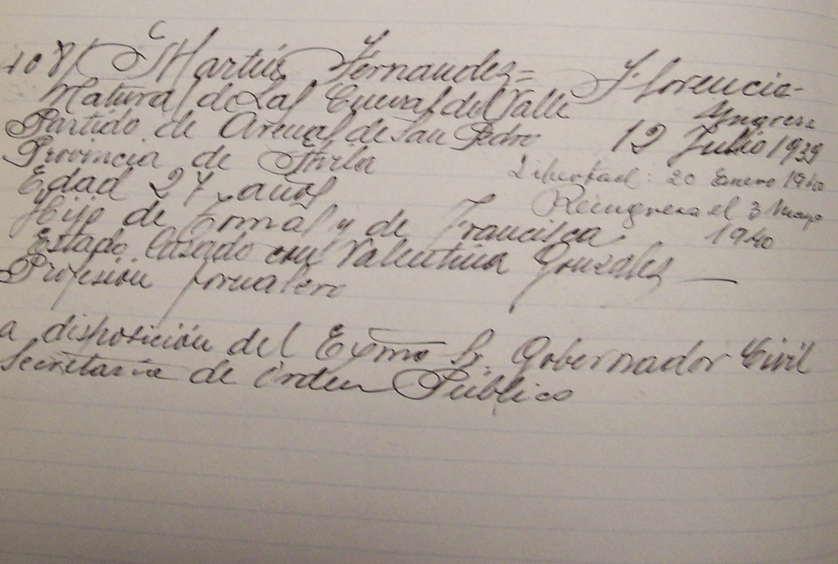 C
108/ Martín Fernandez= Florencio-
Natural de Las Cuevas del Valle
Ingresa
Partido de Arenas de San Pedro
12 Julio 1939
Provincia de Ávila
Libertad: 20 Enero 1940
Edad 27 años
Reingresa el 3 Mayo
1940
Hijo de Tomás y de Francisca
Estado Casado con Valentina Gonzalez —
Profesión jornalero
a disposición del Exmo Sr. Gobernador Civil
Secretaría de órden Público